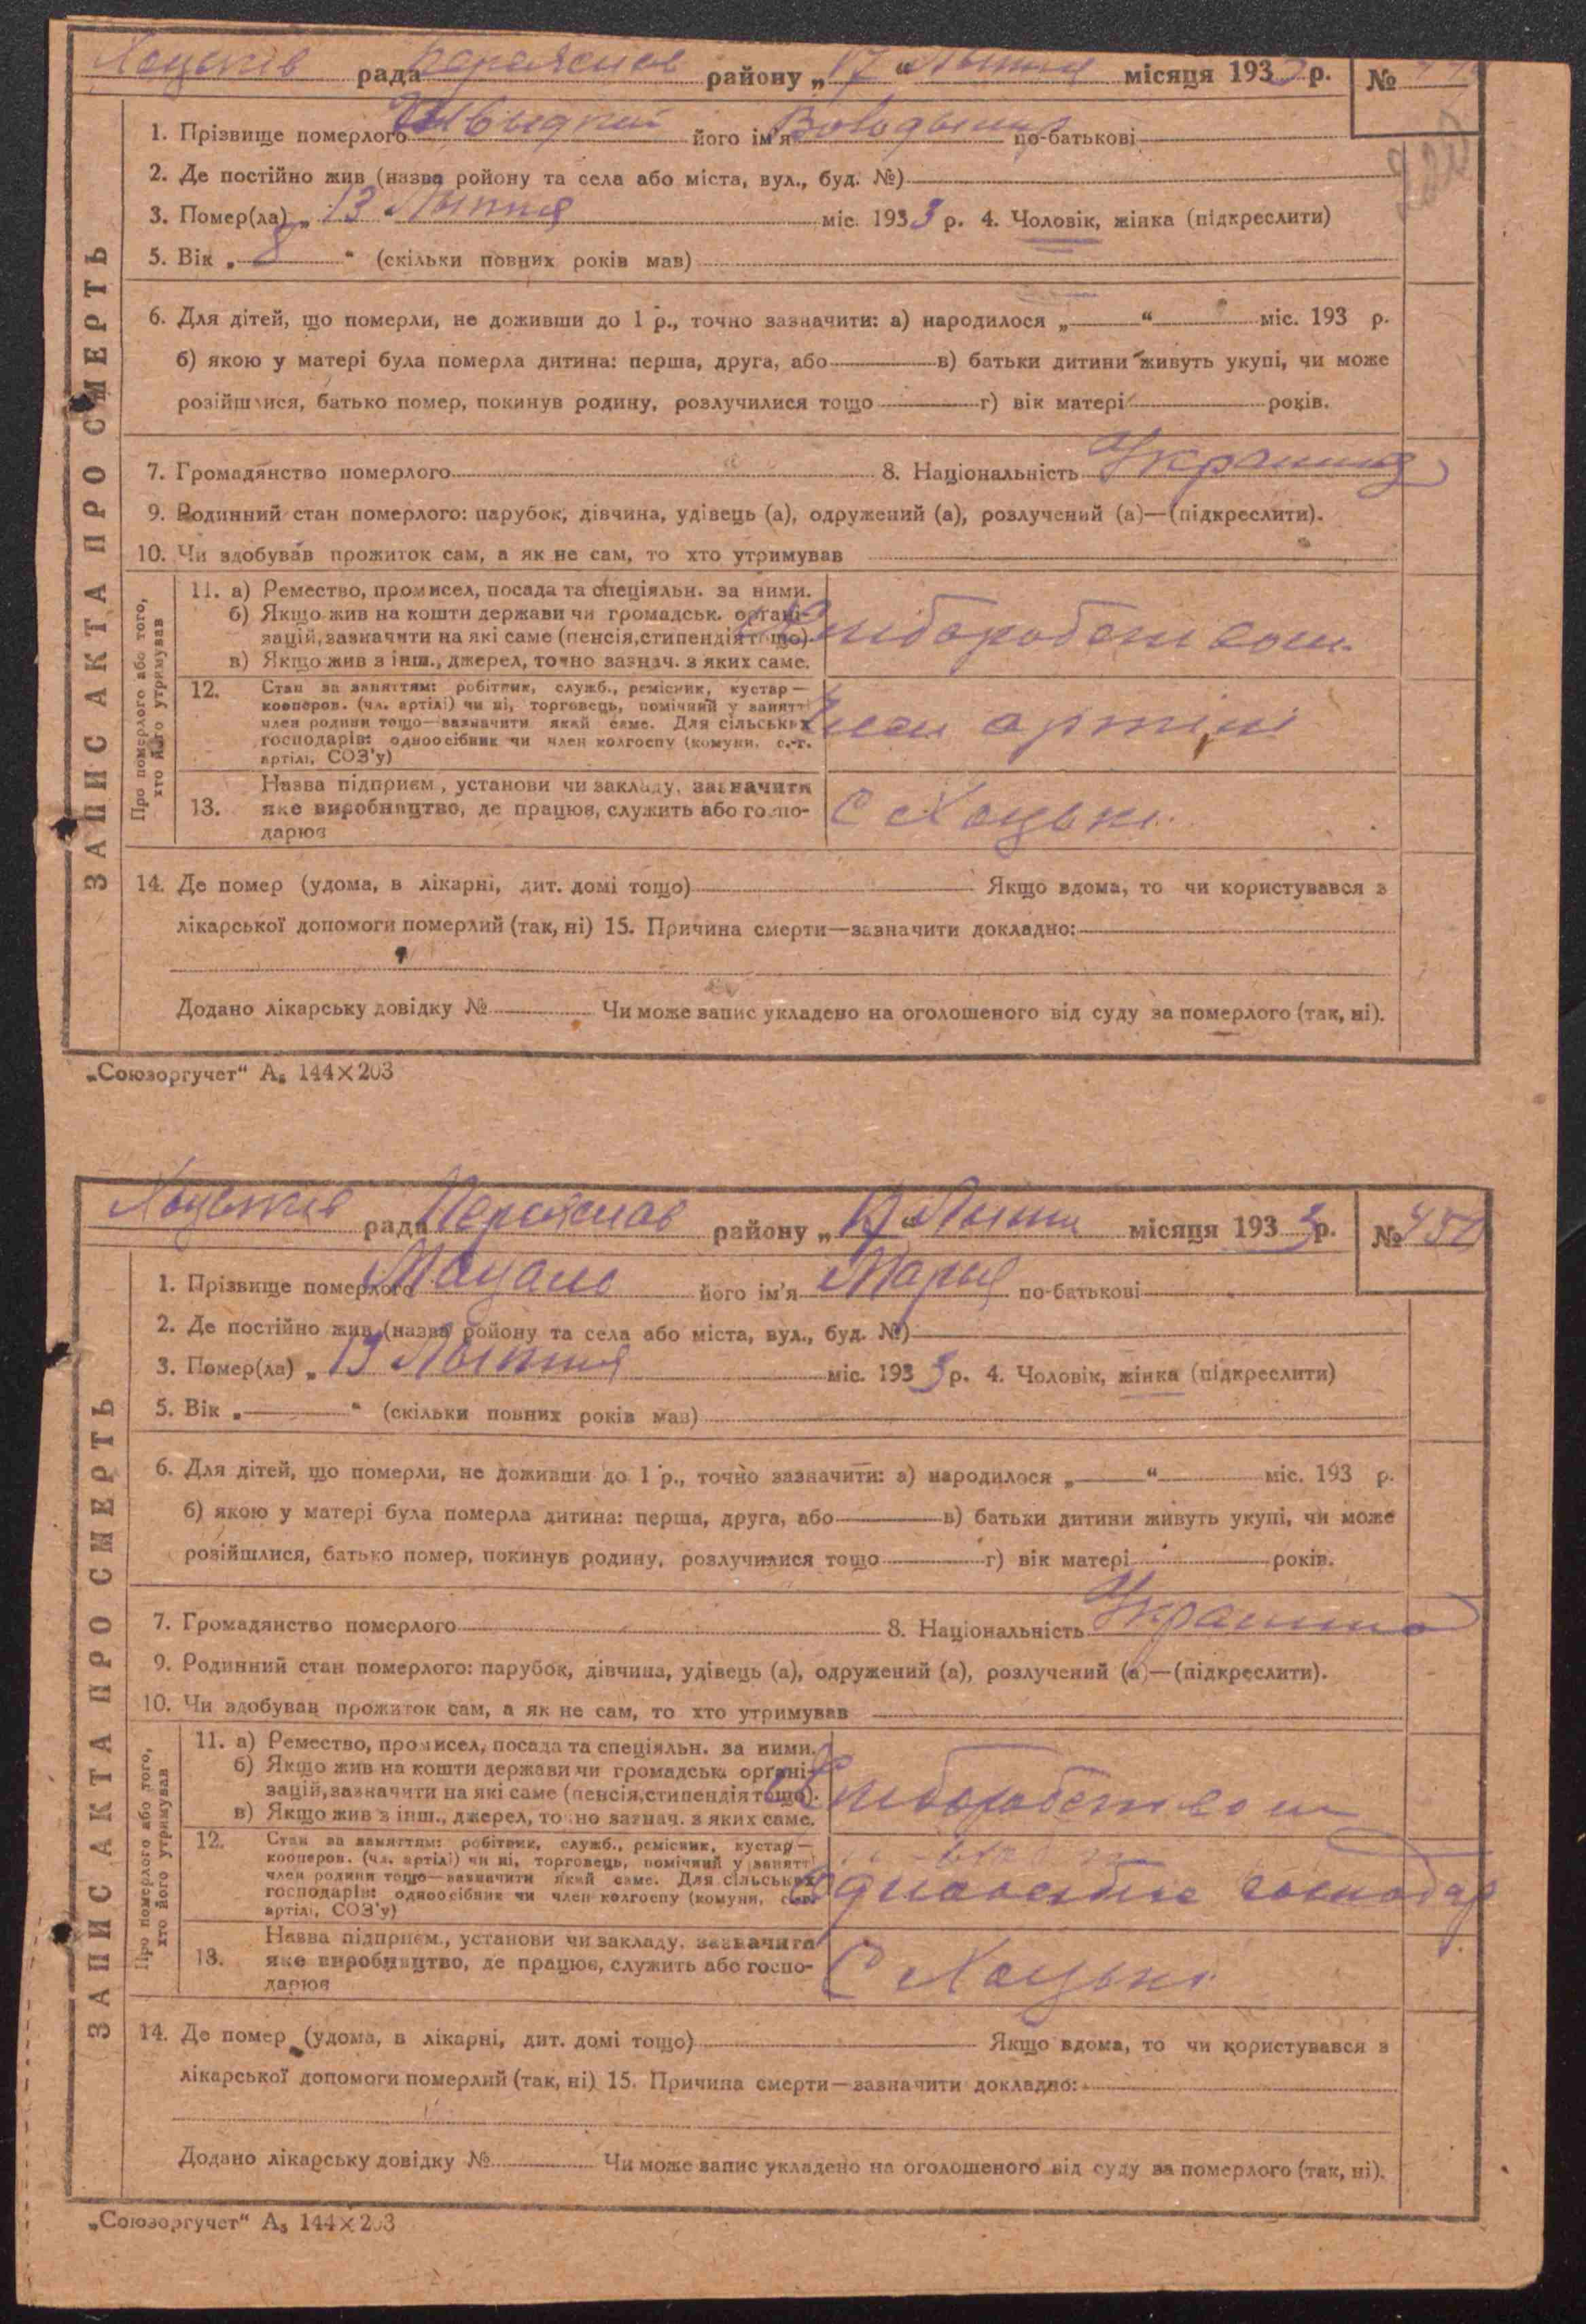 Хоцьків рада Переяслав району „17“ Липня місяця 1933 р. №
1. Прізвище померлого Швидкий його ім'я Володимир по-батькові
2. Де постійно жив (назва ройону та села або міста, вул., буд. №)
3. Помер(ла) „13 Липня міс. 1933 р. 4. Чоловік, жінка (підкреслити)
5. Вік „8“ (скільки повних років мав)
6. Для дітей, що померли, не доживши до 1 р., точно зазначити: а) народилося „ “ міс. 193 р.
б) якою у матері була померла дитина: перша, друга, або в) батьки дитини живуть укупі, чи може
розійшлися, батько помер, покинув родину, розлучилися тощо г) вік матері років.
7. Громадянство померлого 8. Національність Украинец
9. Родинний стан померлого: парубок, дівчина, удівець (а), одружений (а), розлучений (а)—(підкреслити).
10. Чи здобував прожиток сам, а як не сам, то хто утримував
ЗАПИС АКТА ПРО СМЕРТЬ
Про померлого або того,
хто його утримував
11. а) Ремество, промисел, посада та спеціяльн. за ними.
б) Якщо жив на кошти держави чи громадськ. органі-
зацій, зазначити на які саме (пенсія, стипендія тощо).
в) Якщо жив з інш., джерел, точно зазнач. з яких саме.
12. Стан за заняттям: робітник, служб., ремісник, кустар—
кооперов. (чл. артілі) чи ні, торговець, помічний у занятті
член родини тощо—зазначити який саме. Для сільських
господарів: одноосібник чи член колгоспу (комуни, с.-г.
артілі, СОЗ'у)
Член артілі
13. Назва підприєм., установи чи закладу, зазначити
яке виробництво, де працює, служить або госпо-
дарює
С Хоцьки
14. Де помер (удома, в лікарні, дит. домі тощо) Якщо вдома, то чи користувався з
лікарської допомоги померлий (так, ні) 15. Причина смерти—зазначити докладно:
Додано лікарську довідку № Чи може запис укладено на оголошеного від суду за померлого (так, ні).
„Союзоргучет“ А₅ 144×203
Хоцьків рада Переяслав району „17“ Липня місяця 1933 р. № 450
1. Прізвище померлого його ім'я Мария по-батькові
2. Де постійно жив (назва ройону та села або міста, вул., буд. №)
3. Помер(ла) „13 Липня міс. 1933 р. 4. Чоловік, жінка (підкреслити)
5. Вік „ “ (скільки повних років мав)
6. Для дітей, що померли, не доживши до 1 р., точно зазначити: а) народилося „ “ міс. 193 р.
б) якою у матері була померла дитина: перша, друга, або в) батьки дитини живуть укупі, чи може
розійшлися, батько помер, покинув родину, розлучилися тощо г) вік матері років.
7. Громадянство померлого 8. Національність
9. Родинний стан померлого: парубок, дівчина, удівець (а), одружений (а), розлучений (а)—(підкреслити).
10. Чи здобував прожиток сам, а як не сам, то хто утримував
ЗАПИС АКТА ПРО СМЕРТЬ
Про померлого або того,
хто його утримував
11. а) Ремество, промисел, посада та спеціяльн. за ними.
б) Якщо жив на кошти держави чи громадськ. органі-
зацій, зазначити на які саме (пенсія, стипендія тощо).
в) Якщо жив з інш., джерел, точно зазнач. з яких саме.
12. Стан за заняттям: робітник, служб., ремісник, кустар—
кооперов. (чл. артілі) чи ні, торговець, помічний у занятті
член родини тощо—зазначити який саме. Для сільських
господарів: одноосібник чи член колгоспу (комуни, с.-г.
артілі, СОЗ'у)
господар
13. Назва підприєм., установи чи закладу, зазначити
яке виробництво, де працює, служить або госпо-
дарює
С Хоцьки
14. Де помер (удома, в лікарні, дит. домі тощо) Якщо вдома, то чи користувався з
лікарської допомоги померлий (так, ні) 15. Причина смерти—зазначити докладно:
Додано лікарську довідку № Чи може запис укладено на оголошеного від суду за померлого (так, ні).
„Союзоргучет“ А₅ 144×203